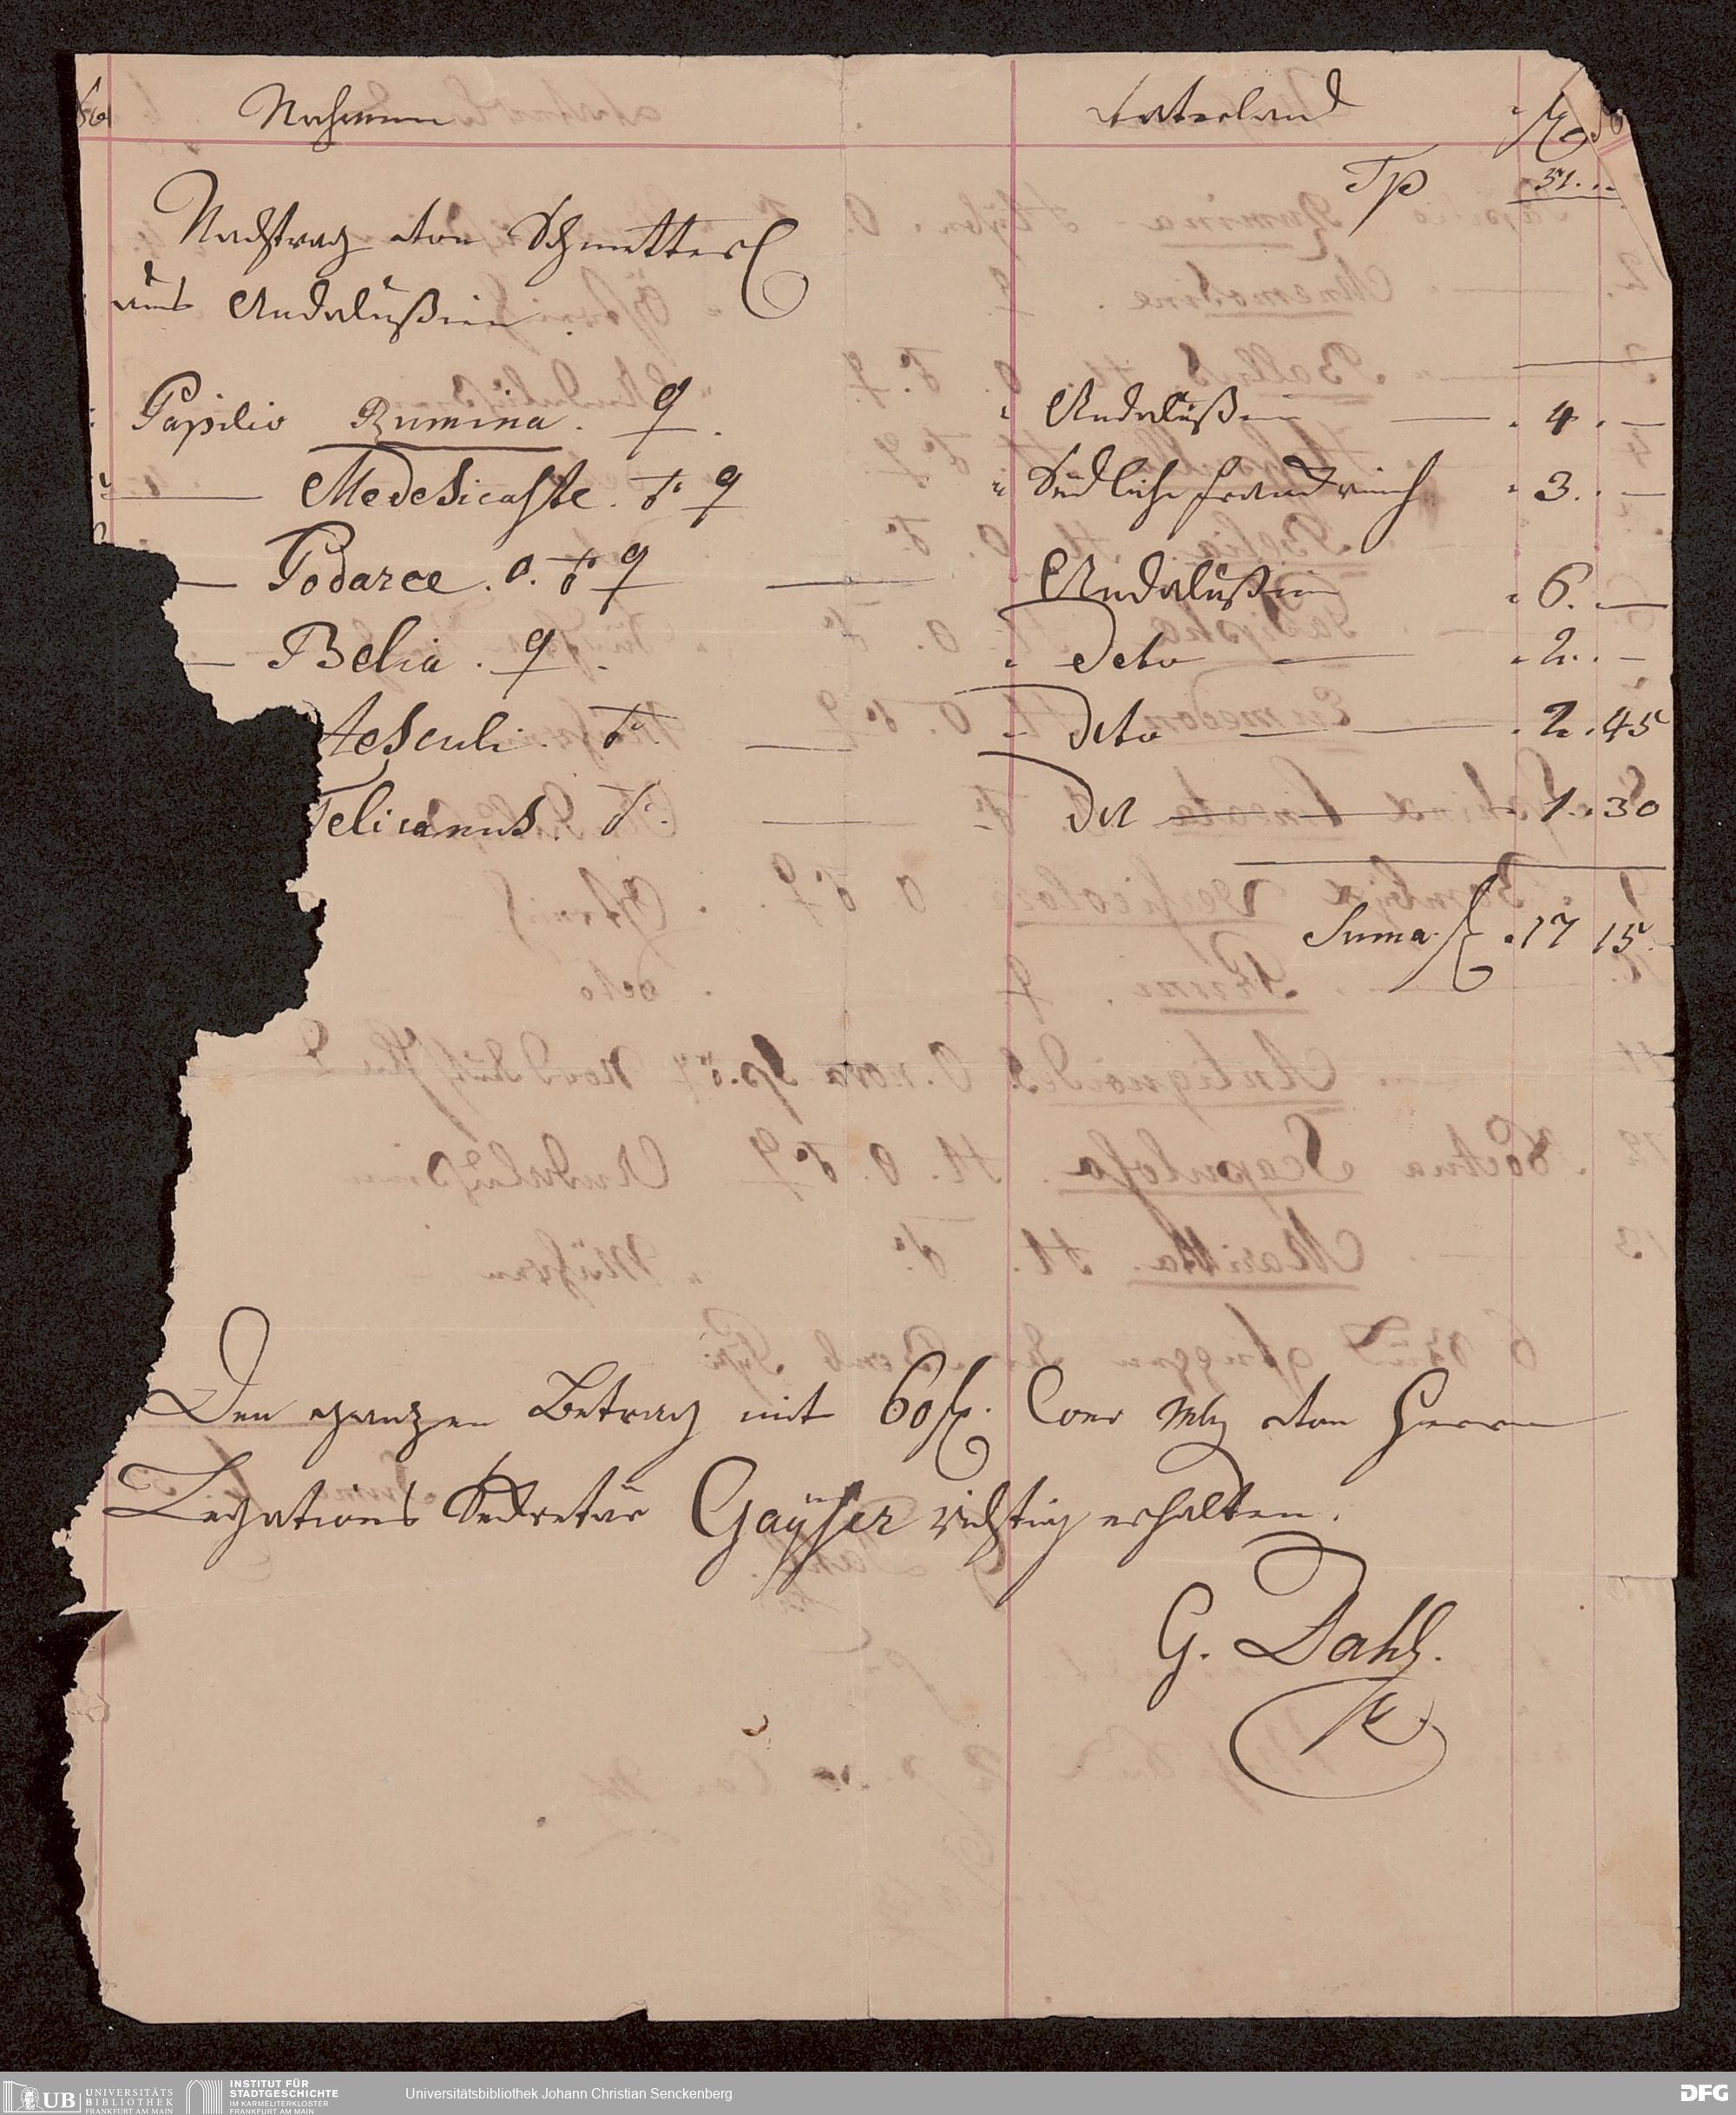 Nahmen Vaterland f
Tp 51. ..
Nachtrag von Schmetterl
aus Andalußien
Papilio Rumina. ♀. " Andalußien — . 4 . —
— Medesicaste. ♂ ♀ " Südliche Frankreich " 3. . —
— Podarce. O. ♂ ♀ — Andalußien " 6. —
— Belia. ♀. " Deto — " 2. . —
Aesculi. ♂. — " Deto — . 2. 45
Telicanus. ♂. — Det — . 1. 30
Suma f . 17 15.
Den ganzen Betrag mit 60 f. Conv Mz von Herrn
Legations Sekretär Gaÿser richtig erhalten.
G. Dahl.
UB UNIVERSITÄTS
BIBLIOTHEK
FRANKFURT AM MAIN
INSTITUT FÜR
STADTGESCHICHTE
IM KARMELITERKLOSTER
FRANKFURT AM MAIN
Universitätsbibliothek Johann Christian Senckenberg
DFG